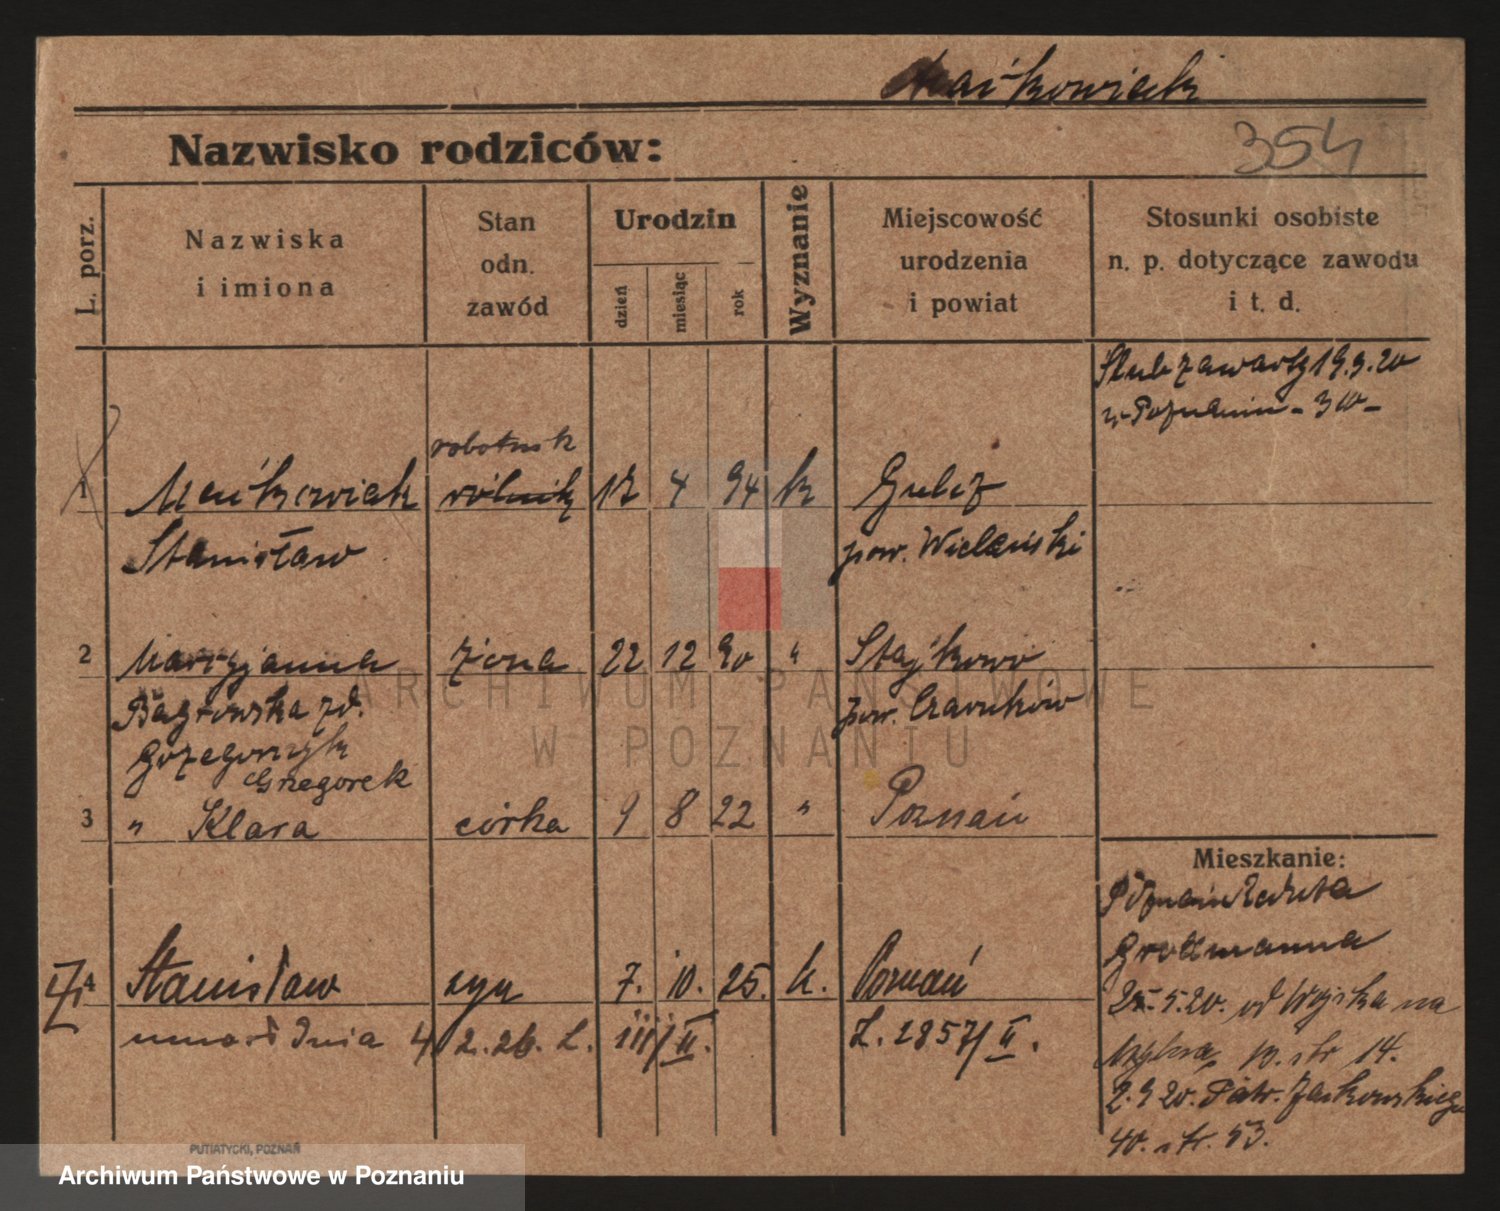 Maćkowiak
Nazwisko rodziców:
354
L. porz.
Nazwiska
i imiona
Stan
odn.
zawód
Urodzin
dzień
miesiąc
rok
Wyznanie
Miejscowość
urodzenia
i powiat
Stosunki osobiste
n. p. dotyczące zawodu
i t. d.
Ślub zawarty 19.9.20
w Poznaniu
robotnik
1 Maćkowiak rólnik 17 4 94 k Gulcz
Stanisław pow. Wieleński
2 Maryjanna żona 22 12 90 " Stajkowo
Bągrowska zd. pow. Czarnków
Grzegorzyk
Grzegorek
3 " Klara córka 9 8 22 " Poznań
Mieszkanie:
Poznań Reduta
Grollmanna
4 Stanisław syn 7. 10. 25. k. Poznań
25.5.20. od Wojska na
umarł dnia 4/2.26. L. III/II. L. 1857/II.
p. str 14.
2.9 20. Patr. Jackowskiego
40. str. 53.
PUTIATYCKI, POZNAŃ
ARCHIWUM PAŃSTWOWE
W POZNANIU
Archiwum Państwowe w Poznaniu